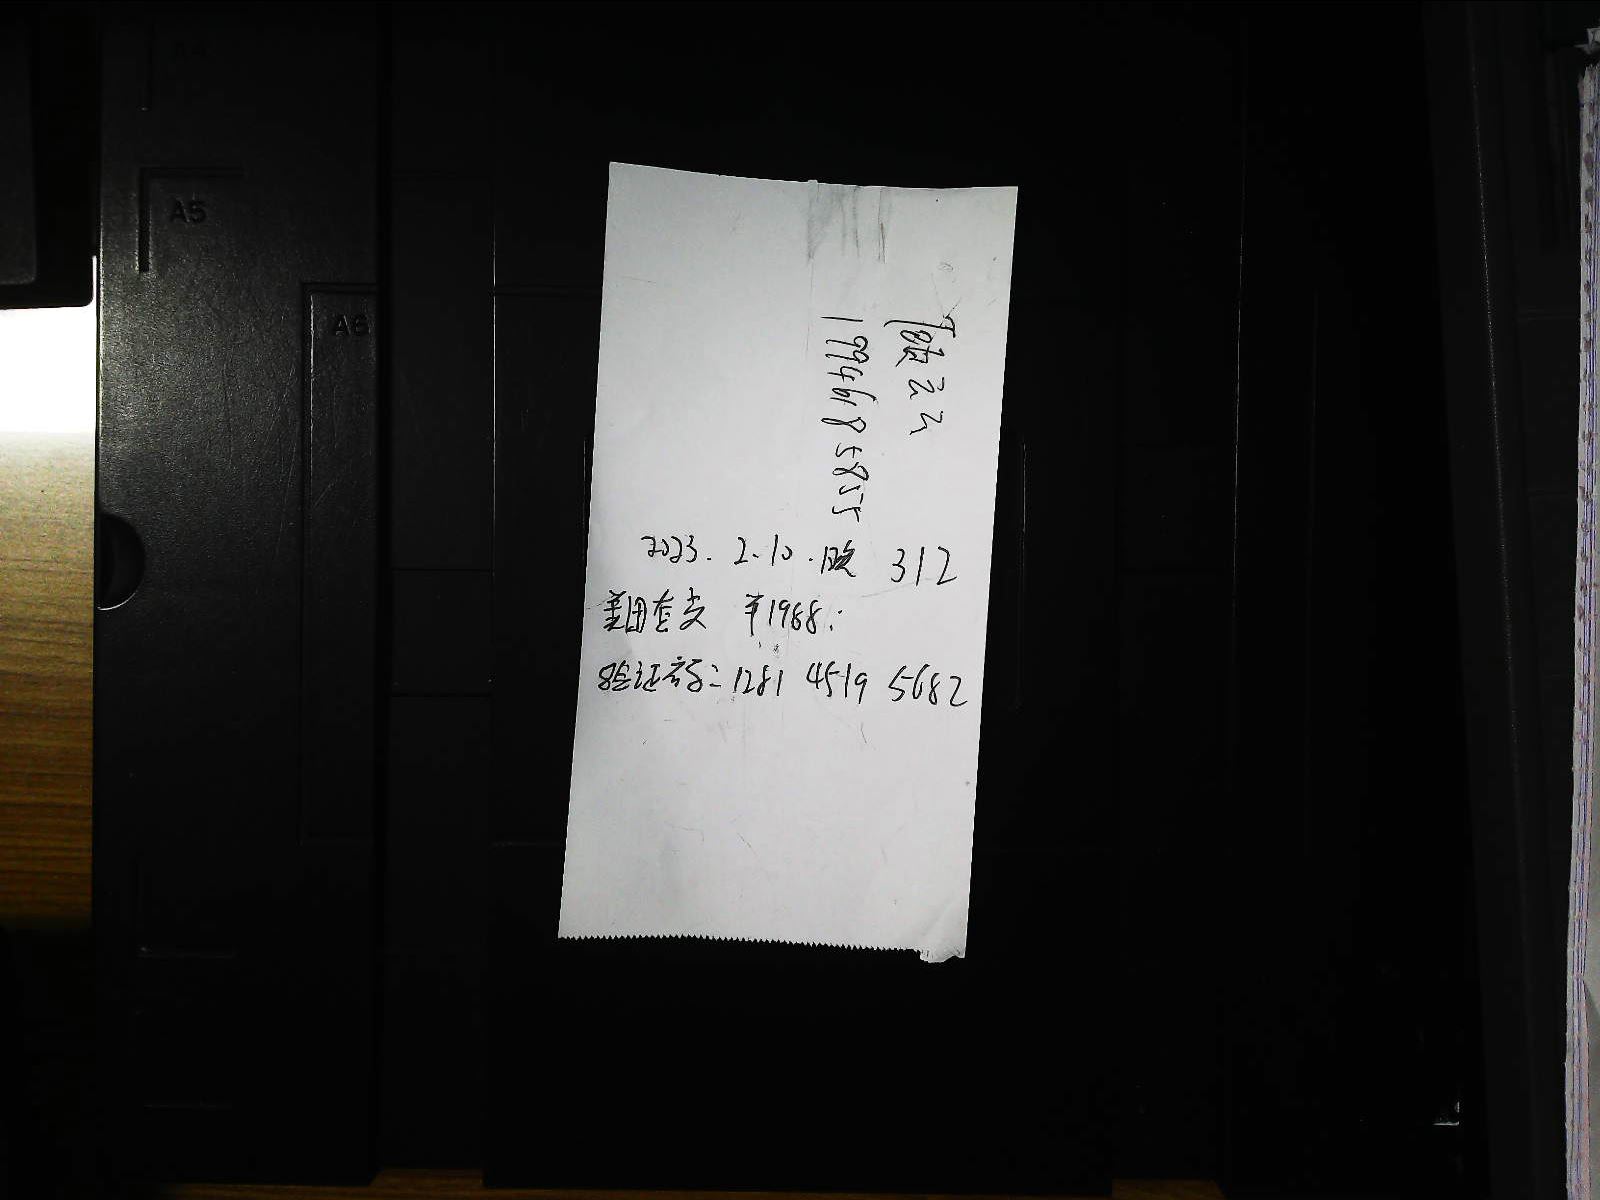 A4
A5
A6
云云
19946858555
2023.2.10.晚 312
美团套类 ¥1988:
验证券号:1281 4519 5682